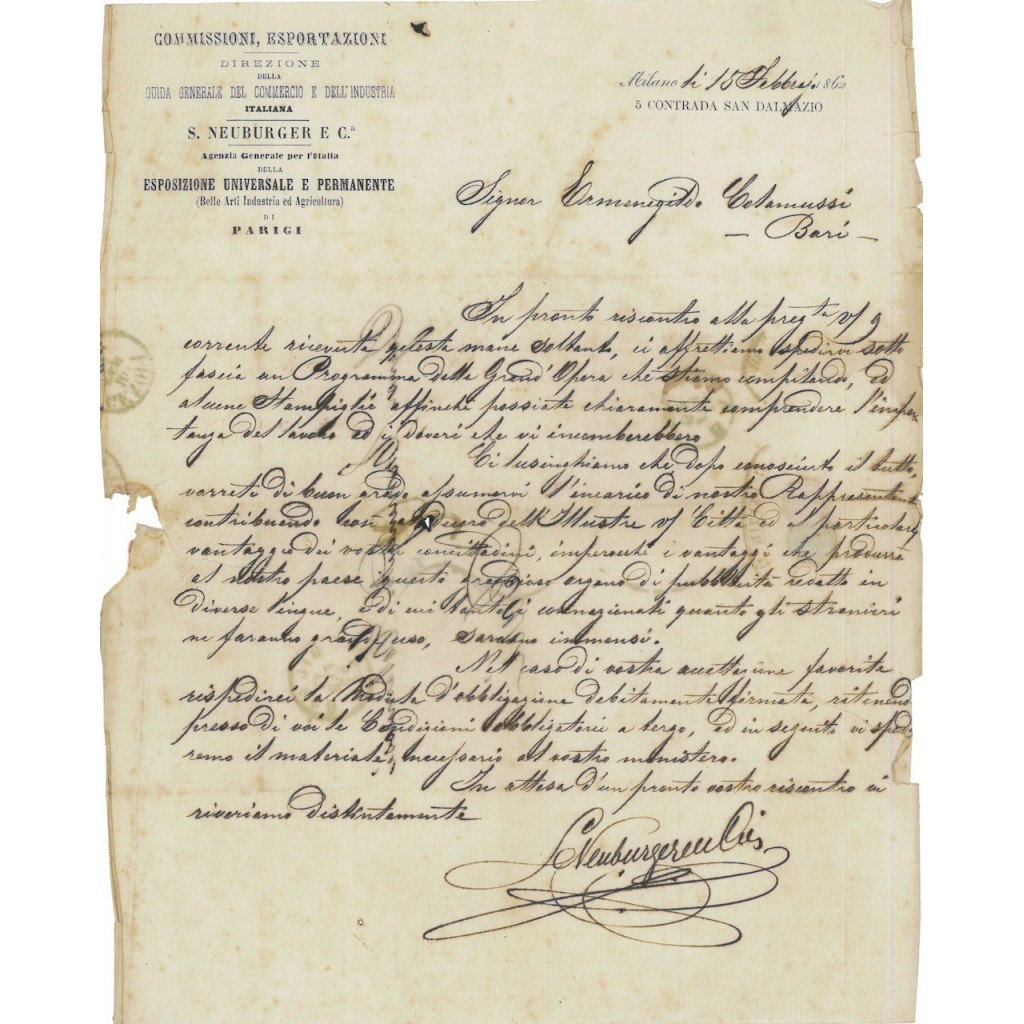 COMMISSIONI, ESPORTAZIONI
DIREZIONE
DELLA
GUIDA GENERALE DEL COMMERCIO E DELL'INDUSTRIA
ITALIANA
S. NEUBURGER E C.a
Agenzia Generale per l'Italia
DELLA
ESPOSIZIONE UNIVERSALE E PERMANENTE
(Belle Arti Industria ed Agricoltura)
DI
PARIGI
Milano li 15 Febbrj. 186
5 CONTRADA SAN DALMAZIO
Signor Ermenegildo Colamussi
— Bari —
In pronto riscontro alla preg.ta v/ 9
corrente ricevuta questa mane soltanto, ci affrettiamo spedirvi sotto
fascia un Programma della Grand'Opera che stiamo compilando, ed
alcune Stampiglie affinchè possiate chiaramente comprendere l'impor
tanza del lavoro ed i doveri che vi incomberebbero
Ci lusinghiamo che, dopo conosciuto il tutto,
vorrete di buon grado assumervi l'incarico di nostro Rappresentan
contribuendo così al decoro dell'Illustre v/ Città ed a particolare
vantaggio dei vostri concittadini, imperocchè i vantaggi che produrrà
al nostro paese questo grandioso organo di pubblicità redatto in
diverse lingue, e di cui tanto i connazionali quanto gli stranieri
ne faranno grand'uso, saranno immensi.
Nel caso di vostra accettazione favorite
rispedirci la Modula d'obbligazione debitamente firmata, ritenend
presso di voi le Condizioni obbligatorie a tergo, ed in seguito vi spedi
remo il materiale necessario al vostro ministero.
In attesa d'un pronto vostro riscontro vi
riveriamo distintamente
S Neuburger